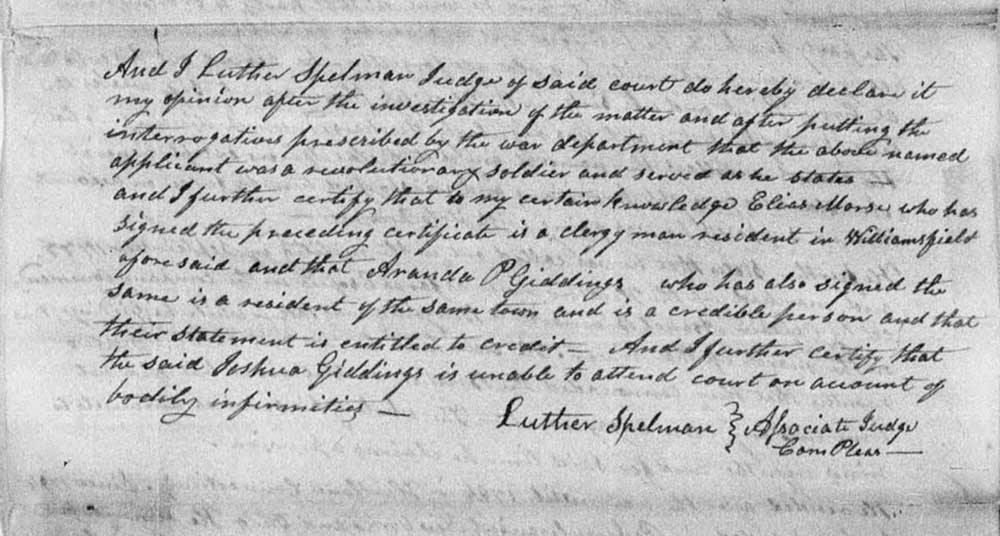 And I Luther Spelman Judge of said court do hereby declare it
my opinion after the investigation of the matter and after putting the
interrogatives prescribed by the war department that the above named
applicant was a revolutionary soldier and served as he states
and I further certify that to my certain knowledge Elias Morse who has
signed the preceding certificate is a clergy man resident in Williamsfield
afore said and that Aranda P Giddings who has also signed the
same is a resident of the same town and is a credible person and that
their statement is entitled to credit — And I further certify that
the said Joshua Giddings is unable to attend court on account of
bodily infirmities —
Luther Spelman } Associate Judge
Com Pleas —